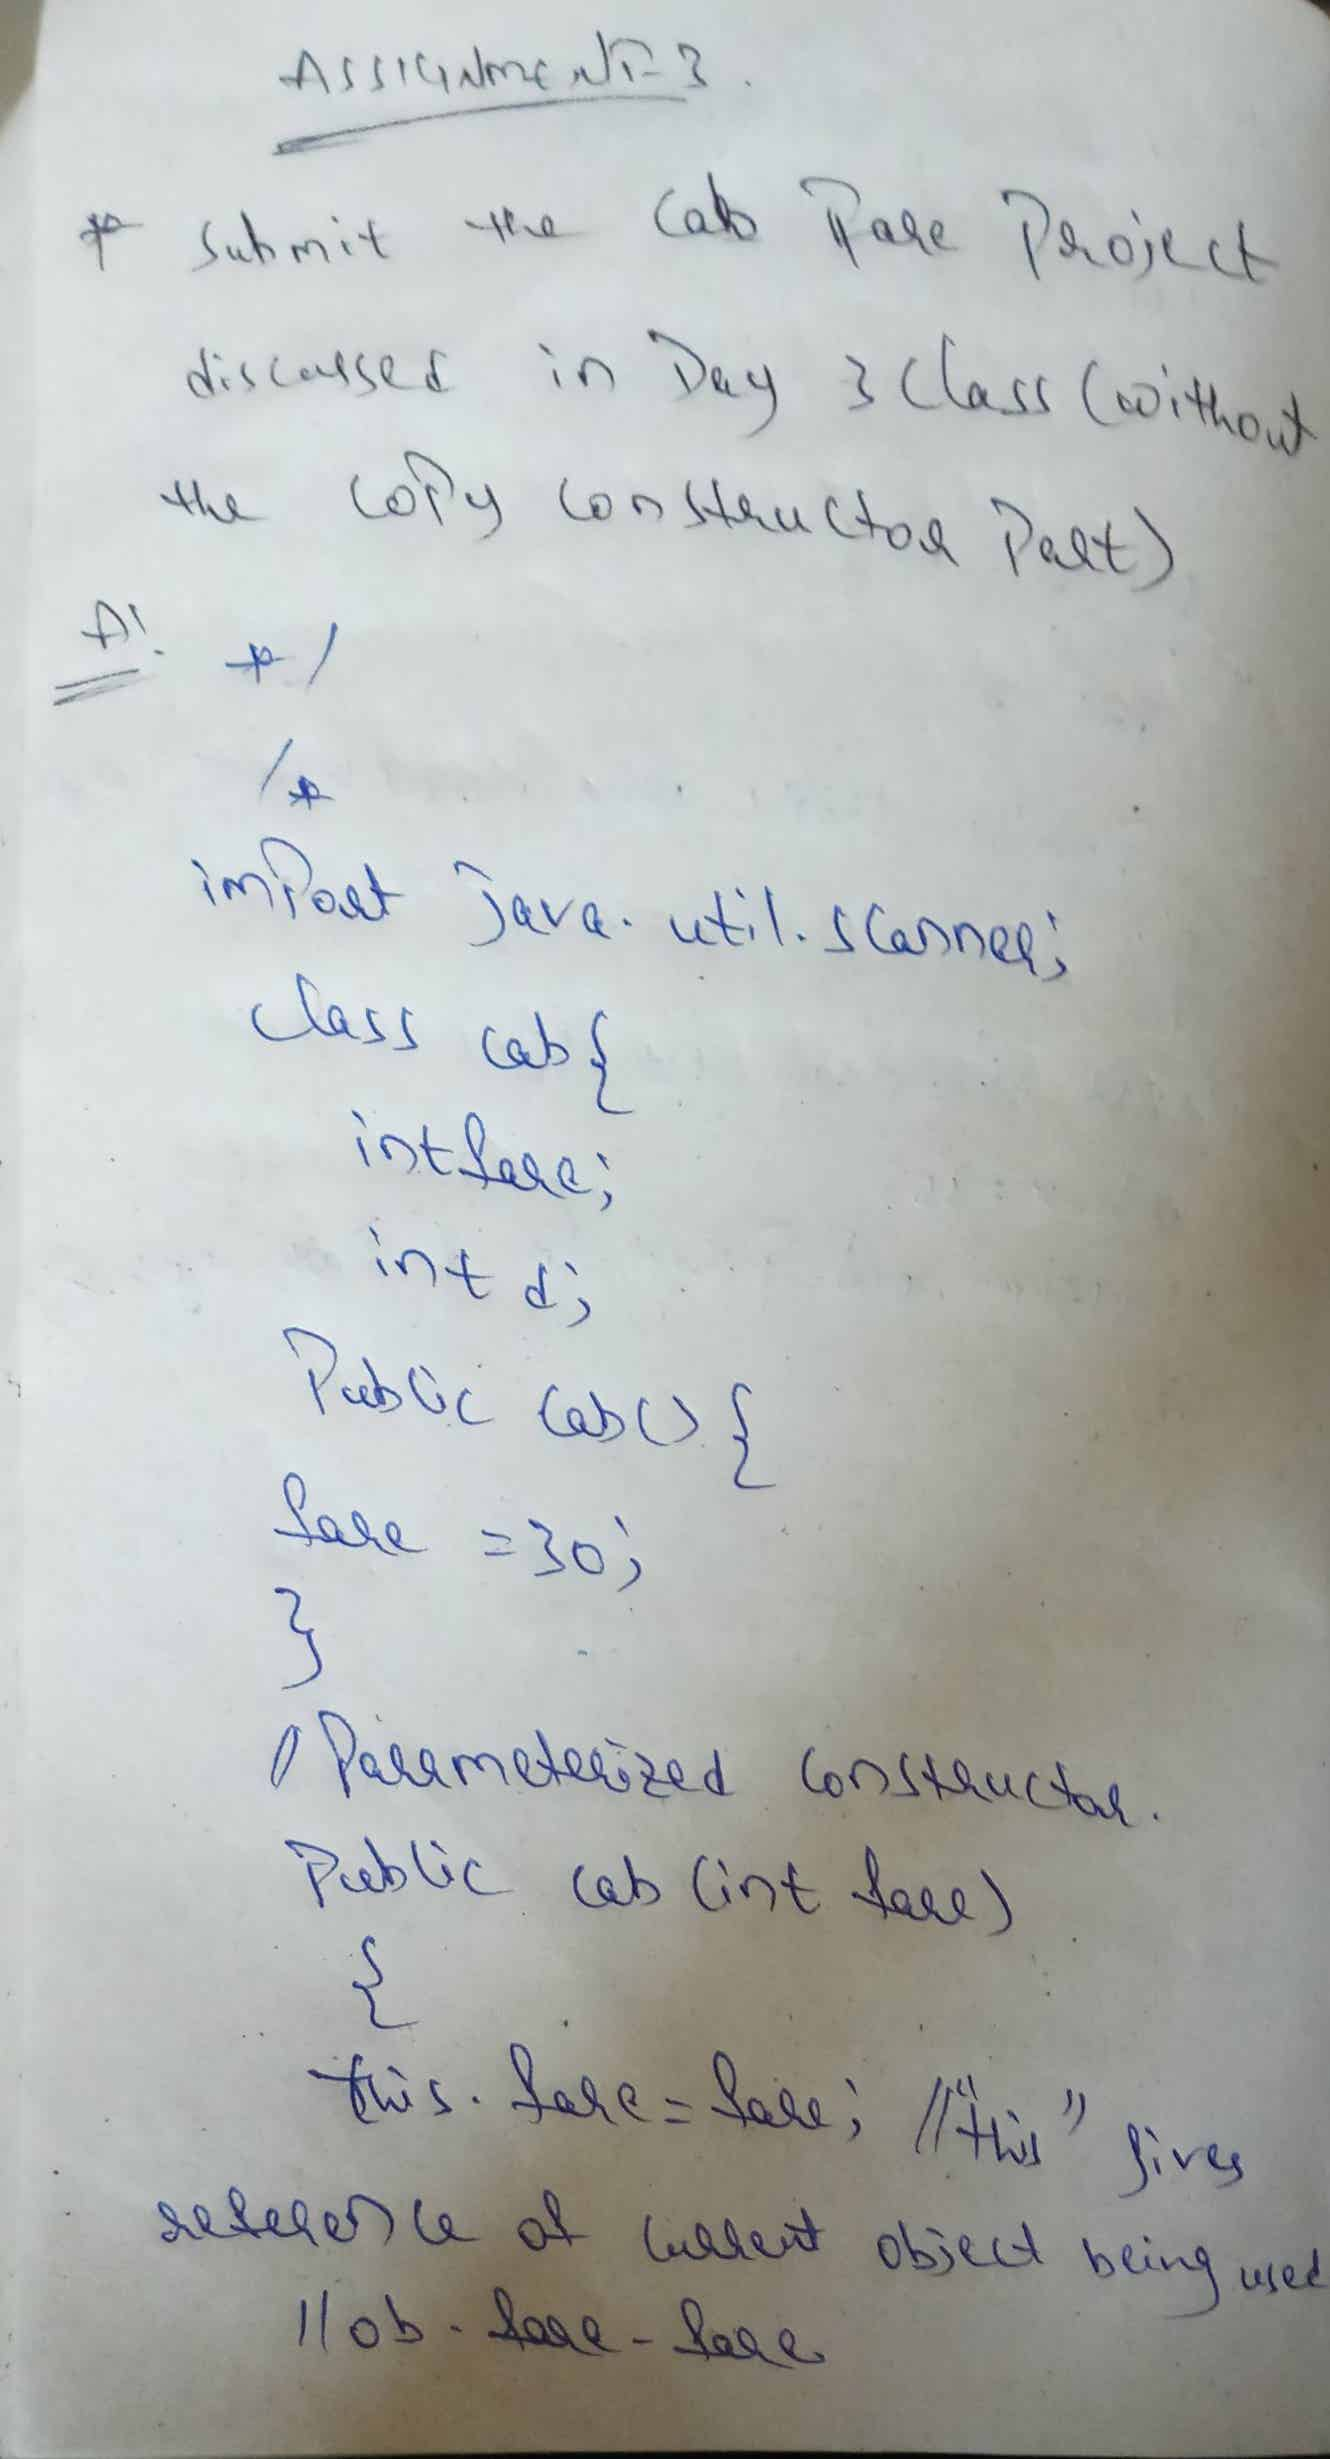 ASSIGNMENT-3.
* Submit the Cab Fare Project
discussed in Day 3 Class (without
the copy constructor Part)
A:
*/
/*
import java.util.scanner;
class cab{
int fare;
int d;
Public cab() {
fare =30;
}
/ Parameterized constructor.
Public cab (int fare)
{
this.fare=fare; //"this" gives
reference of current object being used
//ob.fare-fare